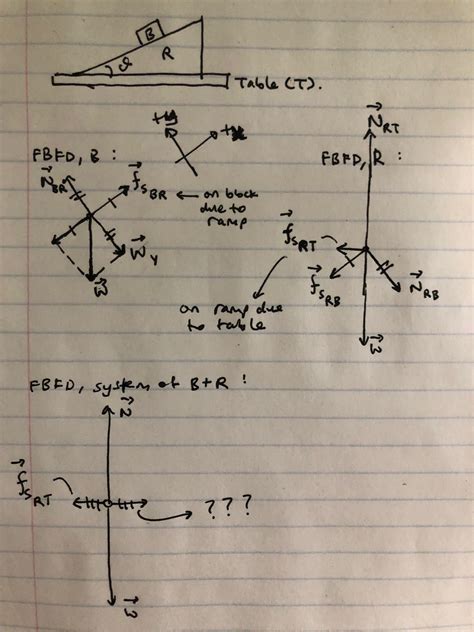 B
R
θ
Table (T).
+y
+x
FBFD, B :
N⃗BR
f⃗sBR ← on block
due to
ramp
W⃗y
W⃗
N⃗RT
FBFD, R :
f⃗sRT
f⃗sRB
N⃗RB
W⃗
on ramp due
to table
FBFD, system of B+R :
N⃗
f⃗sRT
→ ???
W⃗